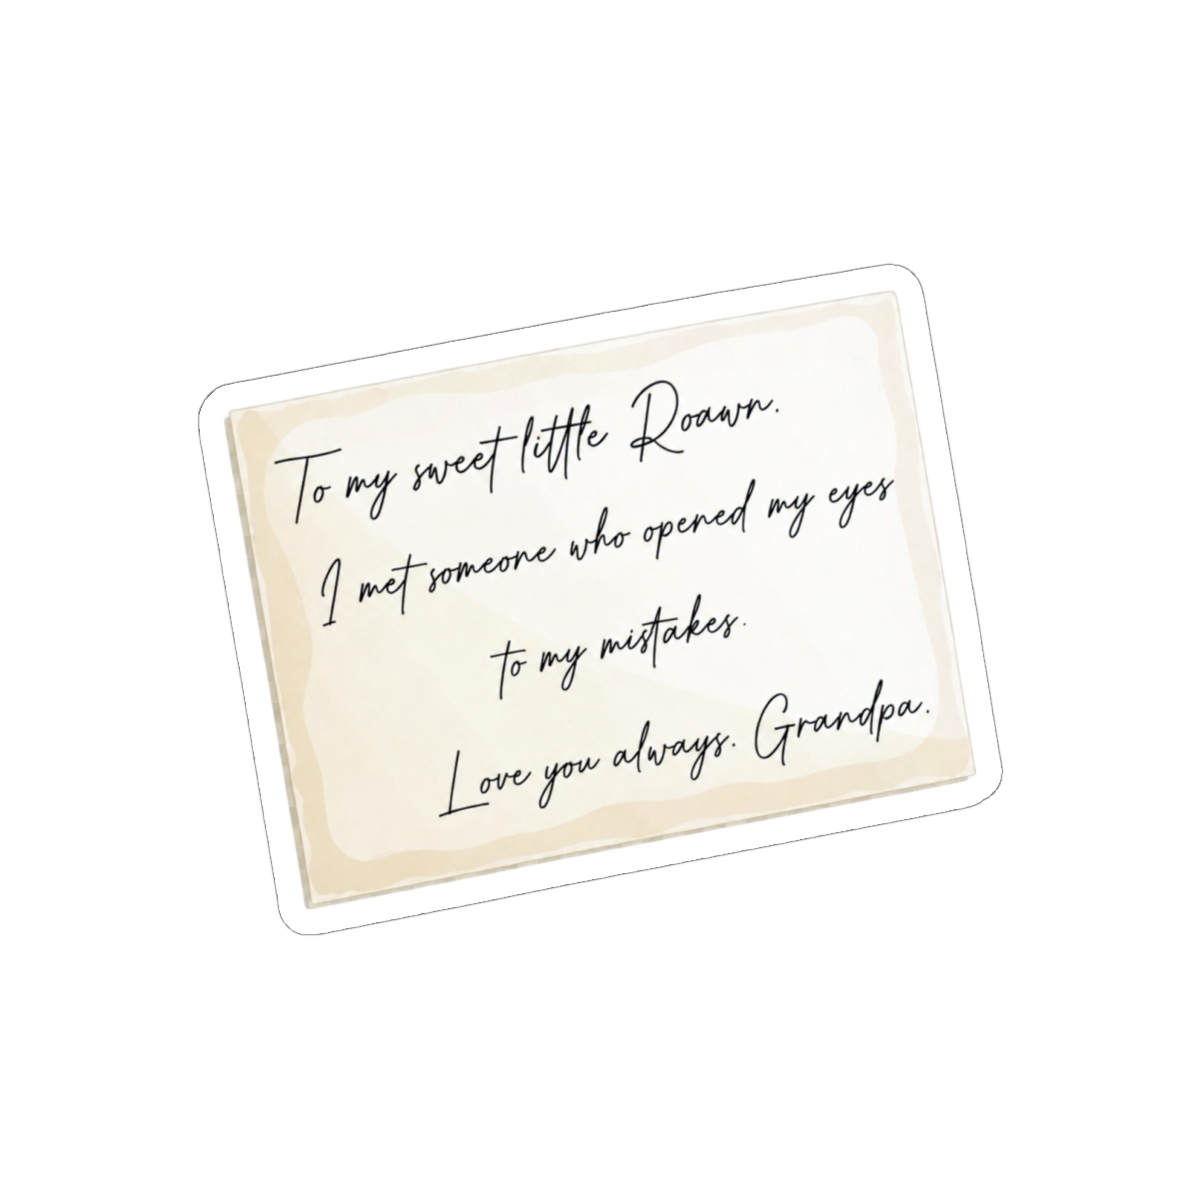 To my sweet little Roawn.
I met someone who opened my eyes
to my mistakes.
Love you always. Grandpa.